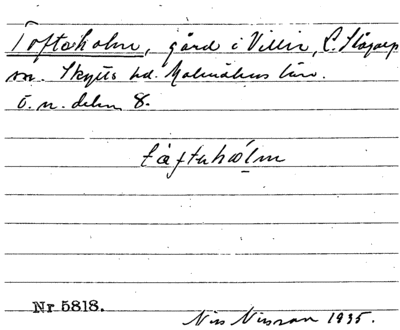 Toftaholm, gård i Villie, L. Slågarp
sn. Skytts hd. Malmöhus län.
ö. n. delen 8.
tæftahólm
Nr 5818.
Nils Nilsson 1935.